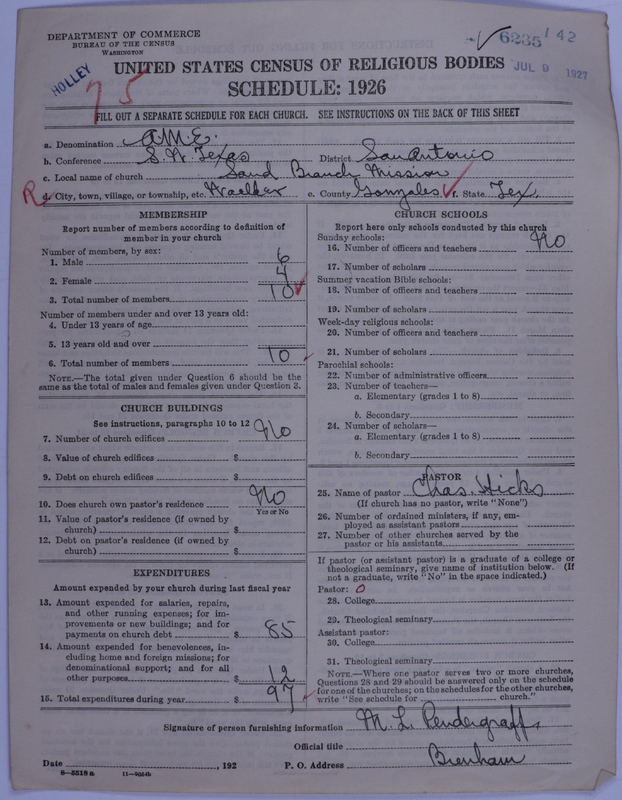 DEPARTMENT OF COMMERCE
BUREAU OF THE CENSUS
WASHINGTON
HOLLEY
75
6235 / 42
JUL 9 1927
UNITED STATES CENSUS OF RELIGIOUS BODIES
SCHEDULE: 1926
FILL OUT A SEPARATE SCHEDULE FOR EACH CHURCH. SEE INSTRUCTIONS ON THE BACK OF THIS SHEET
a. Denomination A.M.E.
b. Conference S. W. Texas District San Antonio
c. Local name of church Sand Branch Mission
R d. City, town, village, or township, etc. Waelder e. County Gonzales f. State Tex.
MEMBERSHIP
Report number of members according to definition of
member in your church
Number of members, by sex:
1. Male 6
2. Female 4
3. Total number of members 10
Number of members under and over 13 years old:
4. Under 13 years of age
5. 13 years old and over
6. Total number of members 10
NOTE.—The total given under Question 6 should be the
same as the total of males and females given under Question 3.
CHURCH BUILDINGS
See instructions, paragraphs 10 to 12
7. Number of church edifices No
8. Value of church edifices $
9. Debt on church edifices $
10. Does church own pastor's residence No
Yes or No
11. Value of pastor's residence (if owned by
church) $
12. Debt on pastor's residence (if owned by
church) $
EXPENDITURES
Amount expended by your church during last fiscal year
13. Amount expended for salaries, repairs,
and other running expenses; for im-
provements or new buildings; and for
payments on church debt $ 85
14. Amount expended for benevolences, in-
cluding home and foreign missions; for
denominational support; and for all
other purposes $ 12
15. Total expenditures during year $ 97
CHURCH SCHOOLS
Report here only schools conducted by this church
Sunday schools:
16. Number of officers and teachers No
17. Number of scholars
Summer vacation Bible schools:
18. Number of officers and teachers
19. Number of scholars
Week-day religious schools:
20. Number of officers and teachers
21. Number of scholars
Parochial schools:
22. Number of administrative officers
23. Number of teachers—
a. Elementary (grades 1 to 8)
b. Secondary
24. Number of scholars—
a. Elementary (grades 1 to 8)
b. Secondary
PASTOR
25. Name of pastor Chas. Hicks
(If church has no pastor, write "None")
26. Number of ordained ministers, if any, em-
ployed as assistant pastors
27. Number of other churches served by the
pastor or his assistants
If pastor (or assistant pastor) is a graduate of a college or
theological seminary, give name of institution below. (If
not a graduate, write "No" in the space indicated.)
Pastor: 0
28. College
29. Theological seminary
Assistant pastor:
30. College
31. Theological seminary
NOTE.—Where one pastor serves two or more churches,
Questions 28 and 29 should be answered only on the schedule
for one of the churches; on the schedules for the other churches,
write "See schedule for church."
Signature of person furnishing information M. L. Pendergraff
Official title
Date , 192 P. O. Address Brenham
8—5518 a